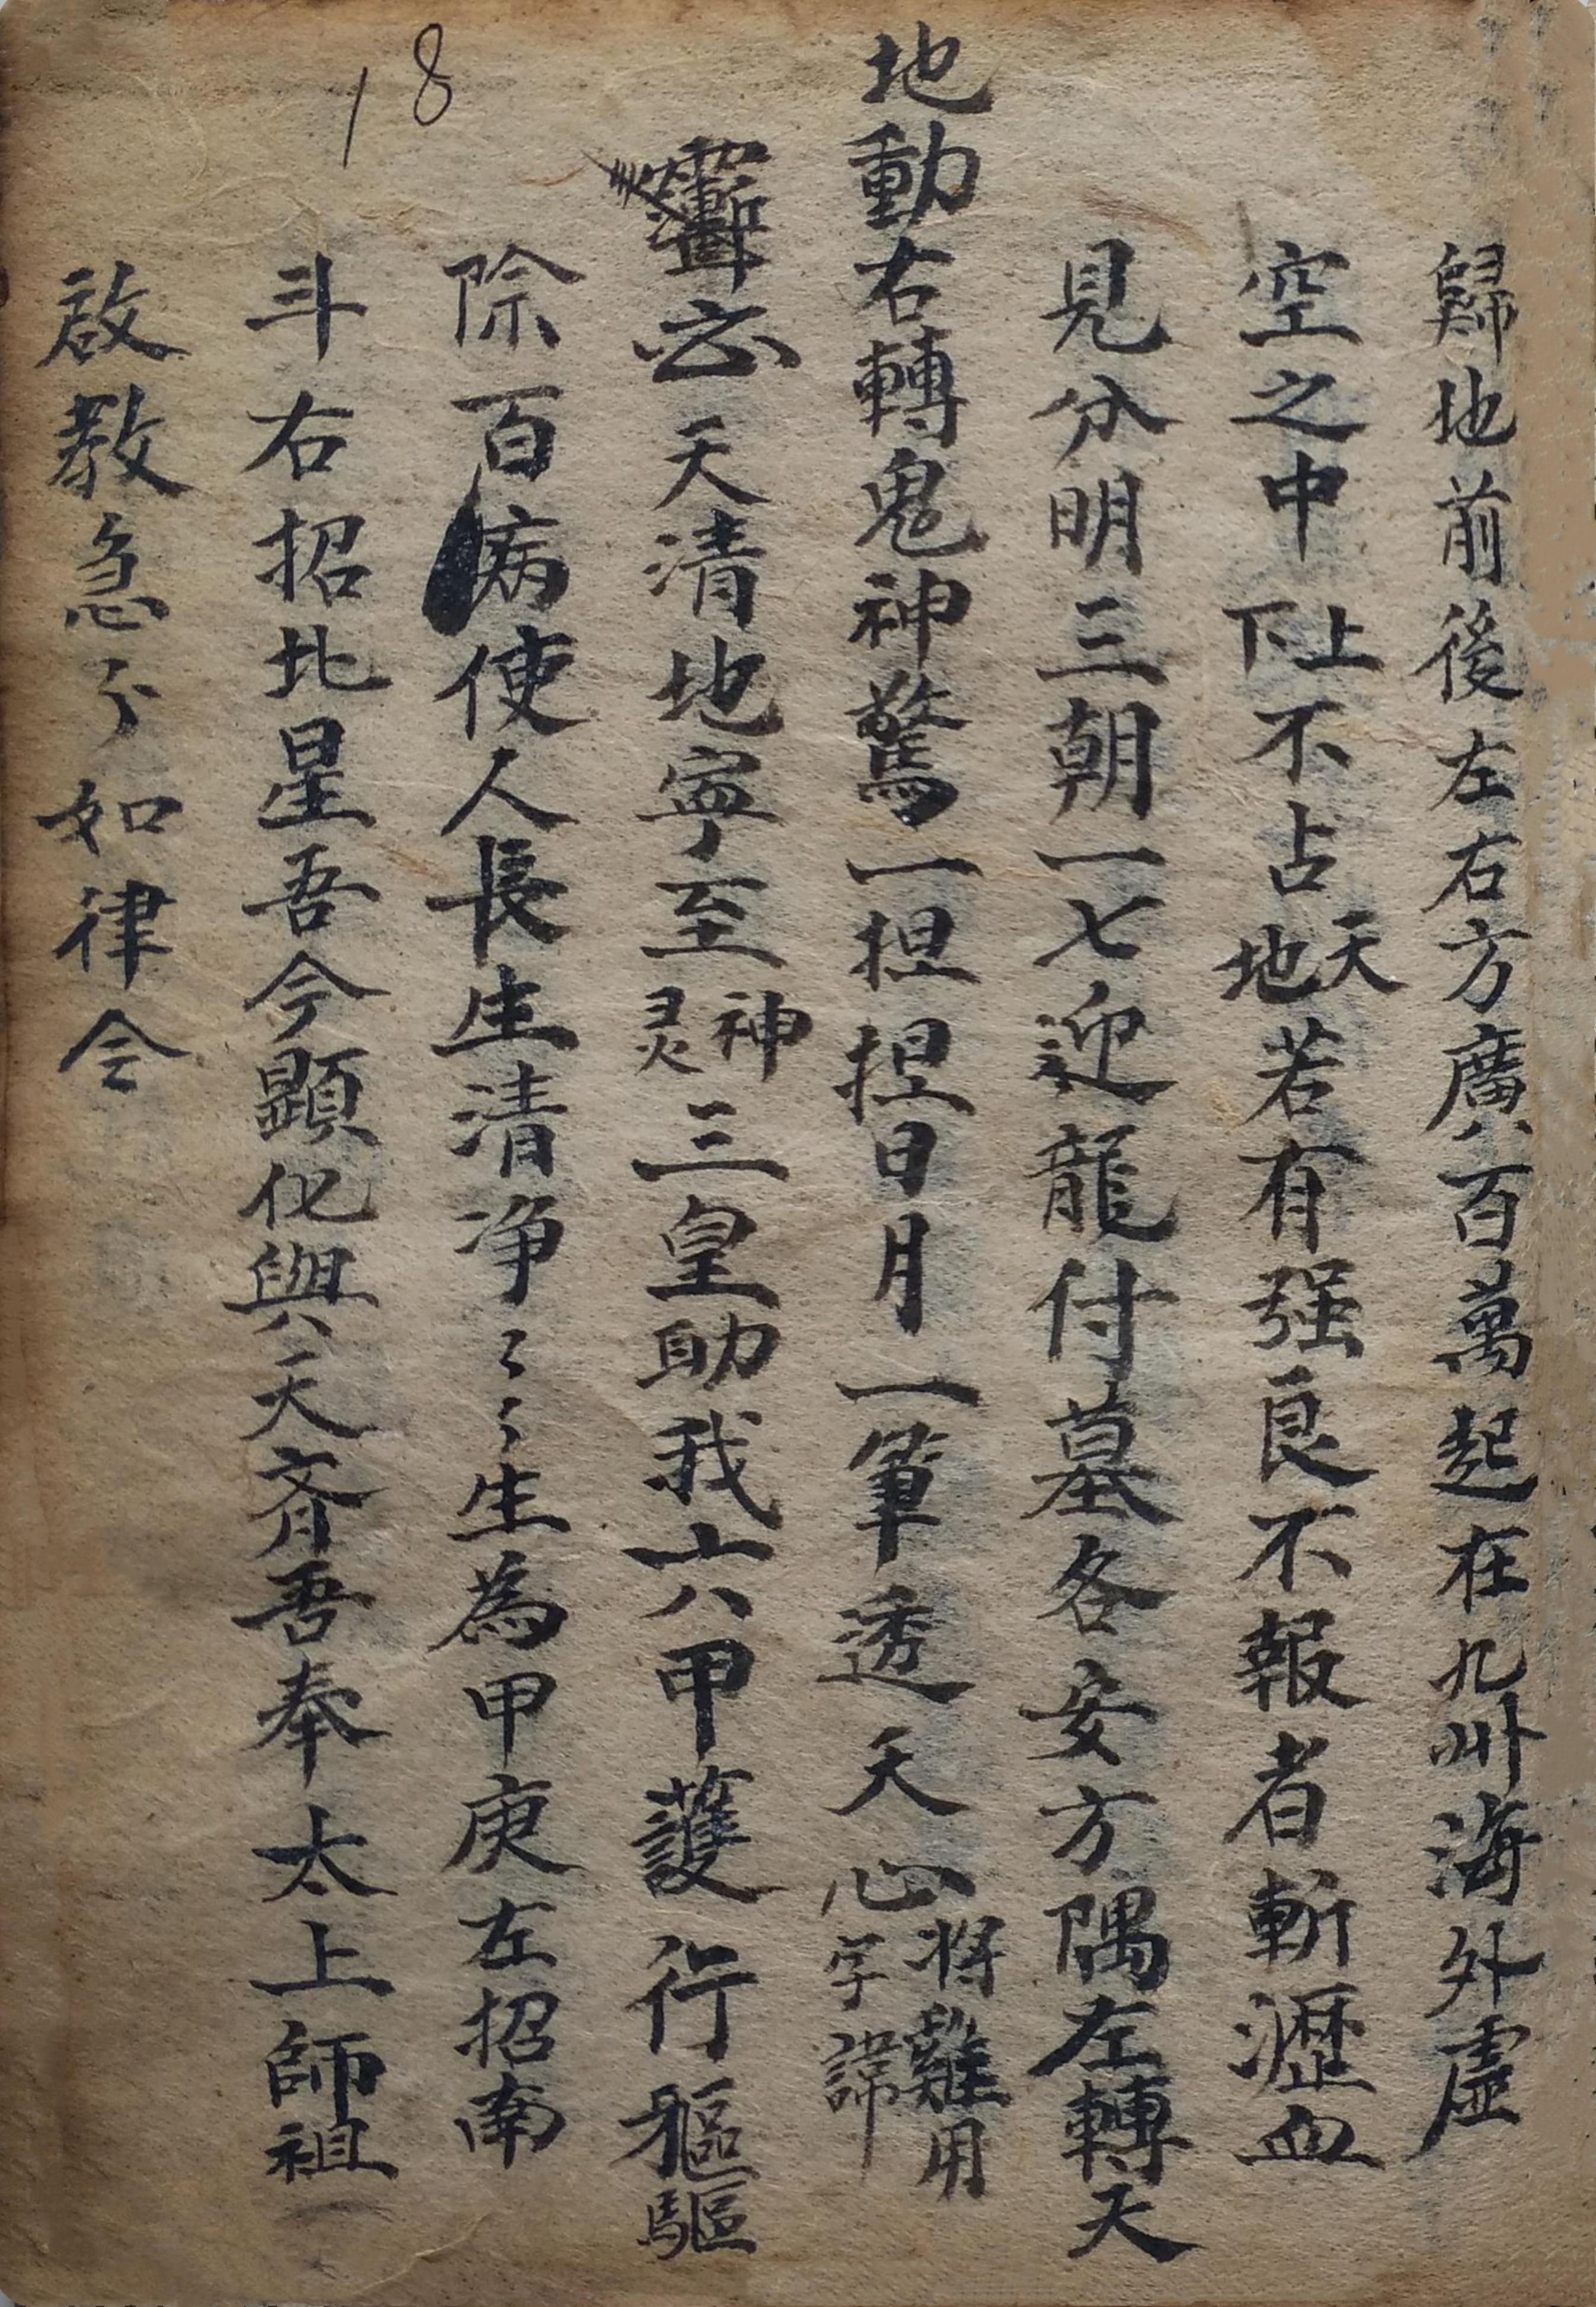 歸地前後左右方廣八百萬起在九州海外虛
空之中上下不占天地若有强良不報者斬瀝血
見分明三朝一七迎龍付墓各安方隅左轉天
地動右轉鬼神驚一担担日月一筆透天心将雞用字諱
天清地寕至神灵三皇助我六甲護行軀驅
除百病使人長生清净〻〻生為甲庚左招南
斗右招北星吾今顕化與天齊吾奉太上師祖
啟教急〻如律令
18